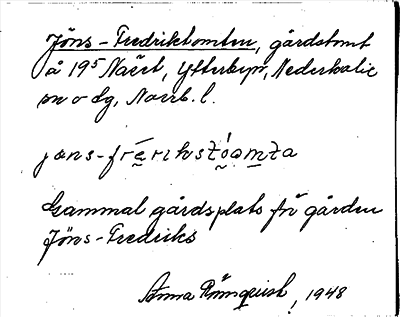 Jöns-Fredriktomten, gårdstomt
å 19⁵ Näset, Ytterbyn, Nederkalix
sn o dg, Norrb. l.
jøns-frērikstóamta
Gammal gårdsplats fr gården
Jöns-Fredriks
Anna Rönnqvist, 1948